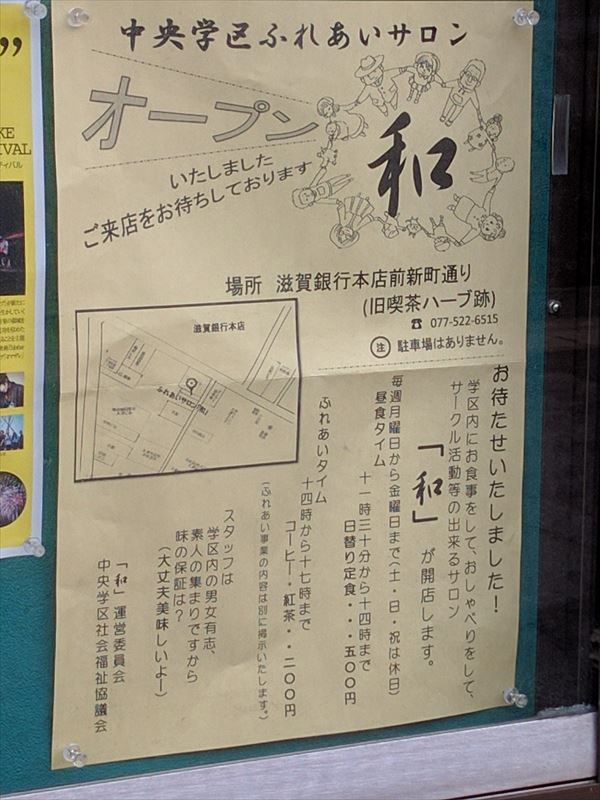 中央学区ふれあいサロン
オープン
いたしました
ご来店をお待ちしております
和
場所 滋賀銀行本店前新町通り
(旧喫茶ハーブ跡)
☎ 077-522-6515
注 駐車場はありません。
滋賀銀行本店
ふれあいサロン「和」
お待たせいたしました!
学区内にお食事をして、おしゃべりをして、
サークル活動等の出来るサロン
「和」が開店します。
毎週月曜日から金曜日まで(土・日・祝は休日)
昼食タイム
十一時三十分から十四時まで
日替り定食・・・五〇〇円
ふれあいタイム
十四時から十七時まで
コーヒー・紅茶・・二〇〇円
(ふれあい事業の内容は別に掲示いたします。)
スタッフは
学区内の男女有志、
素人の集まりですから
味の保証は?
(大丈夫美味しいよー)
「和」運営委員会
中央学区社会福祉協議会
KE
IVAL
ティバル